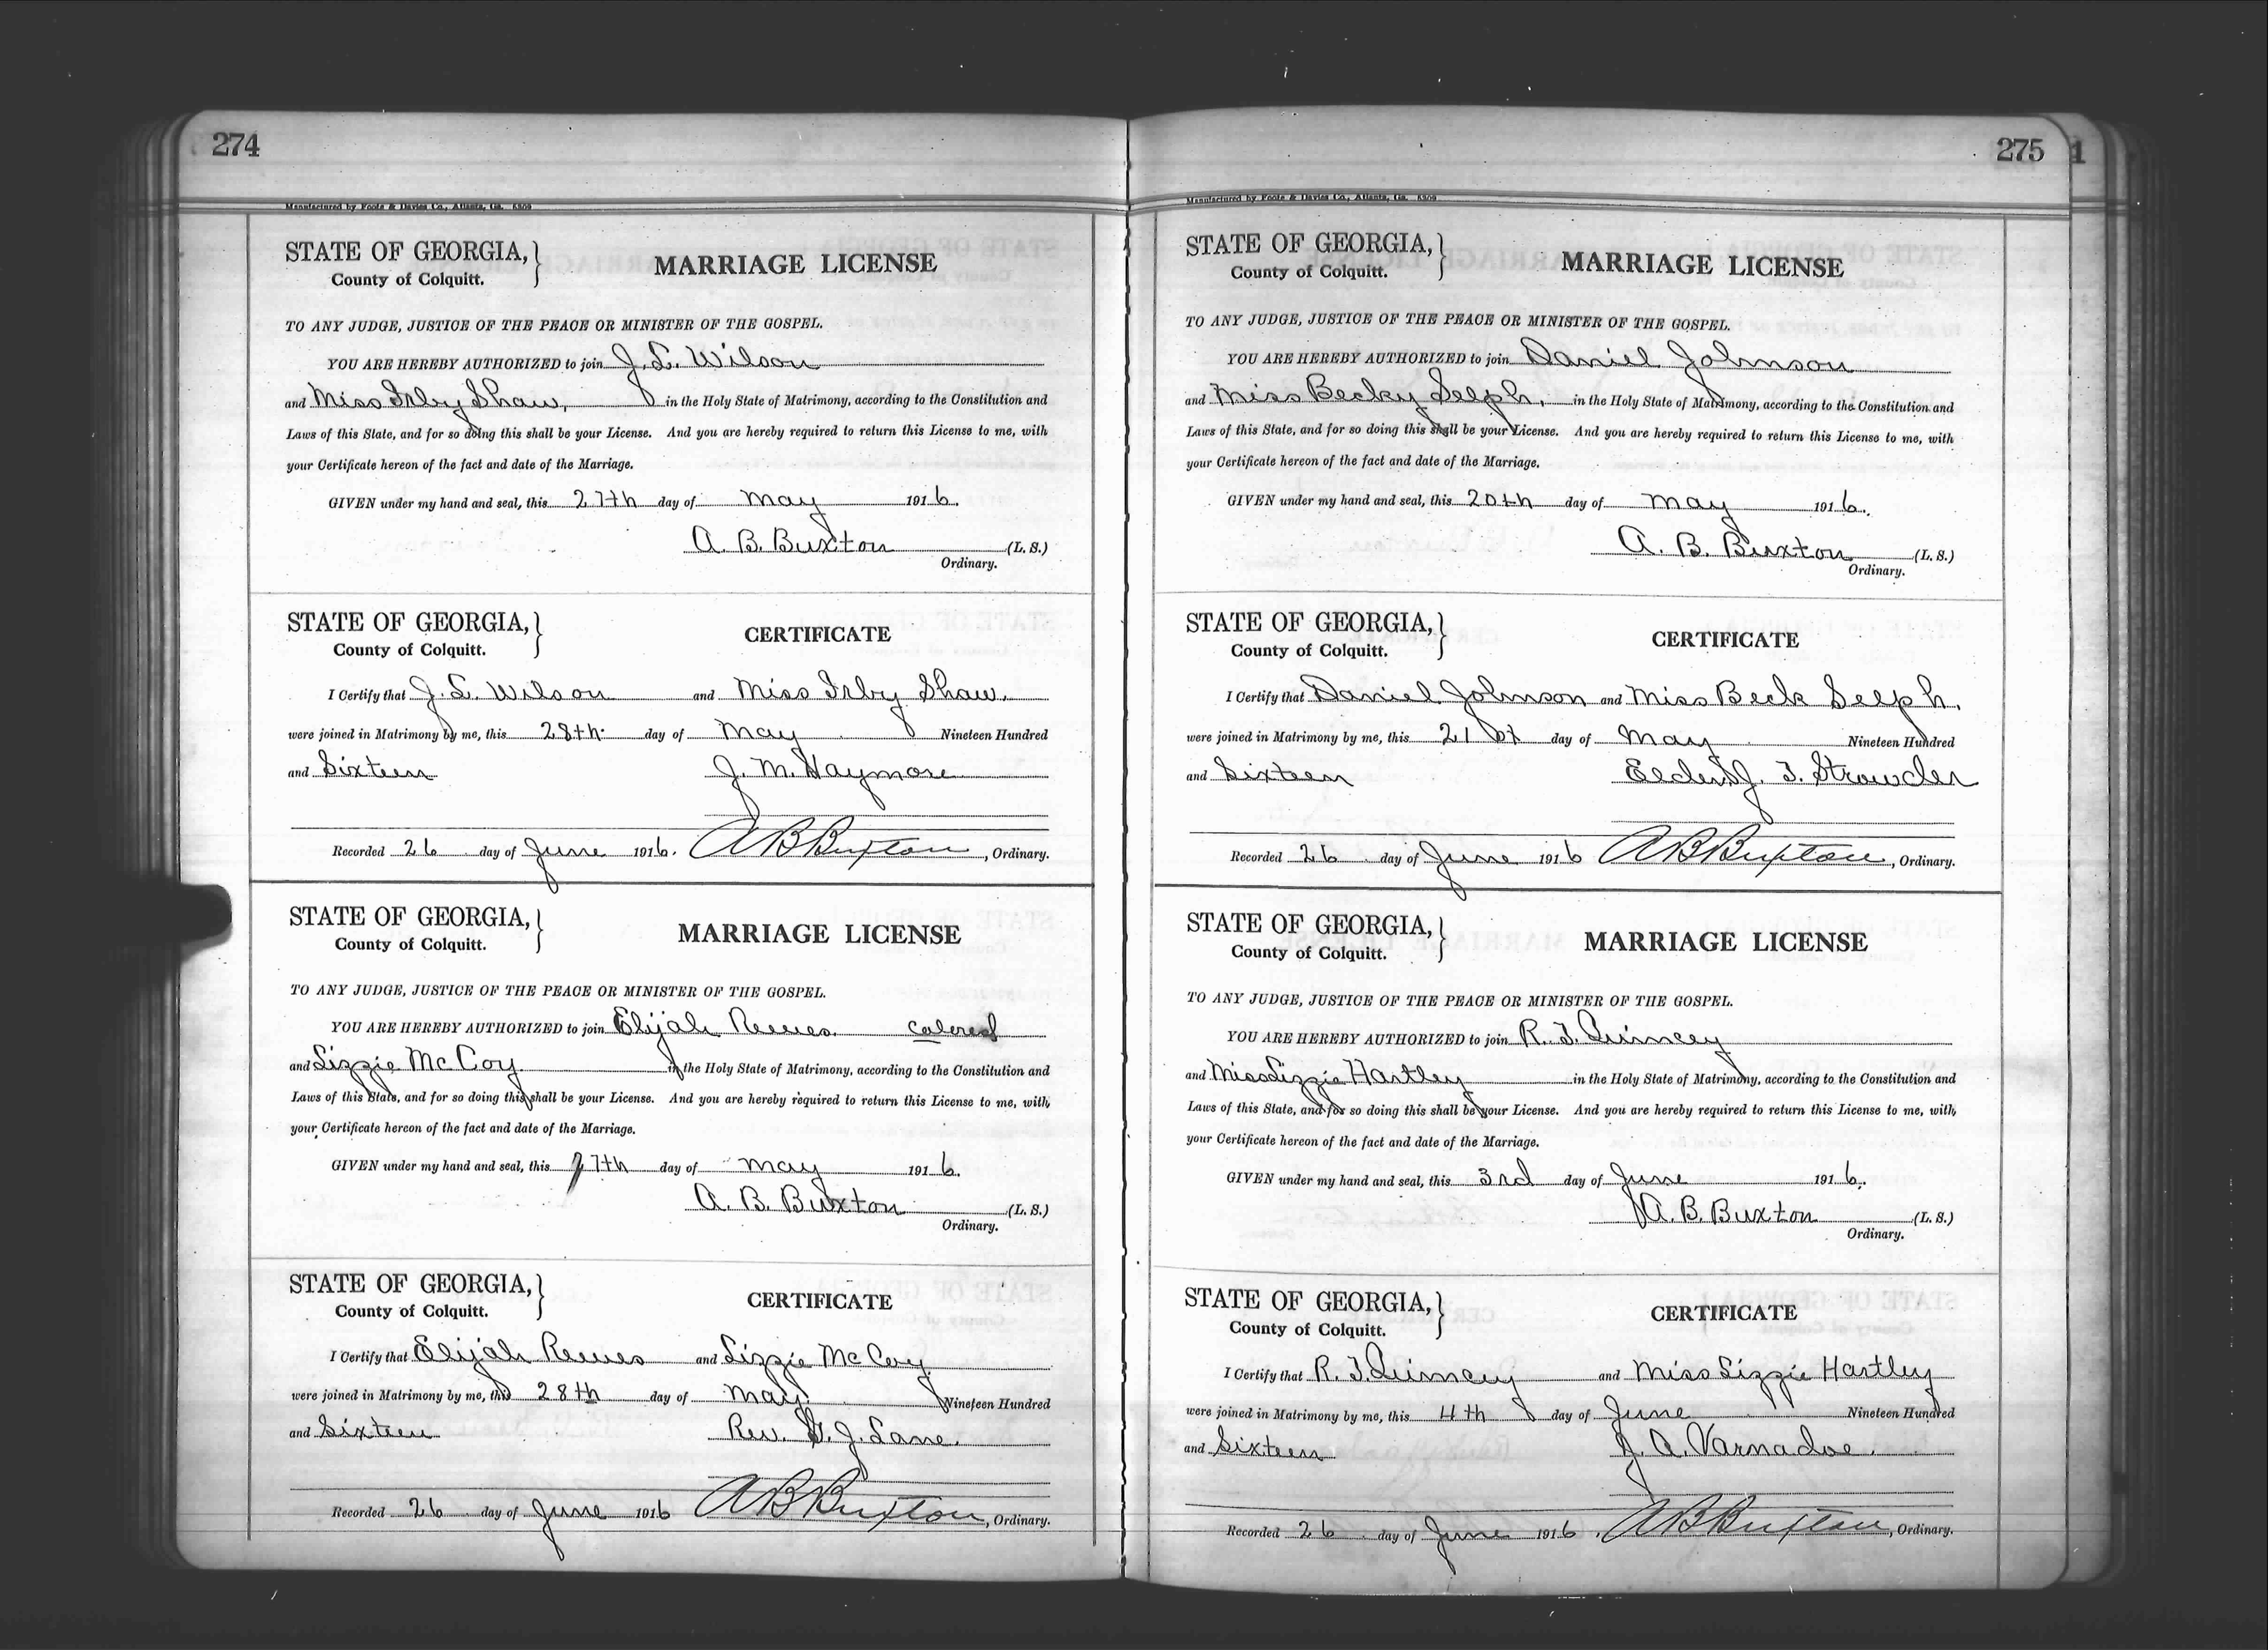 274
Manufactured by Foote & Davies Co., Atlanta, Ga. 6309
STATE OF GEORGIA,
County of Colquitt.
MARRIAGE LICENSE
TO ANY JUDGE, JUSTICE OF THE PEACE OR MINISTER OF THE GOSPEL.
YOU ARE HEREBY AUTHORIZED to join J. L. Wilson
and Miss Irby Shaw, in the Holy State of Matrimony, according to the Constitution and
Laws of this State, and for so doing this shall be your License. And you are hereby required to return this License to me, with
your Certificate hereon of the fact and date of the Marriage.
GIVEN under my hand and seal, this 27th day of May 1916.
A. B. Buxton (L. S.)
Ordinary.
STATE OF GEORGIA,
County of Colquitt.
CERTIFICATE
I Certify that J. L. Wilson and Miss Irby Shaw.
were joined in Matrimony by me, this 28th. day of May Nineteen Hundred
and Sixteen J. M. Haymore
Recorded 26 day of June 1916. A B Buxton, Ordinary.
STATE OF GEORGIA,
County of Colquitt.
MARRIAGE LICENSE
TO ANY JUDGE, JUSTICE OF THE PEACE OR MINISTER OF THE GOSPEL.
YOU ARE HEREBY AUTHORIZED to join Elijah Reeves. colored
and Lizzie McCoy in the Holy State of Matrimony, according to the Constitution and
Laws of this State, and for so doing this shall be your License. And you are hereby required to return this License to me, with
your Certificate hereon of the fact and date of the Marriage.
GIVEN under my hand and seal, this 27th day of May 1916.
A. B. Buxton (L. S.)
Ordinary.
STATE OF GEORGIA,
County of Colquitt.
CERTIFICATE
I Certify that Elijah Reeves and Lizzie McCoy
were joined in Matrimony by me, this 28th day of May. Nineteen Hundred
and Sixteen Rev. J. Lane.
Recorded 26 day of June 1916 A B Buxton, Ordinary.
275
Manufactured by Foote & Davies Co., Atlanta, Ga. 6309
STATE OF GEORGIA,
County of Colquitt.
MARRIAGE LICENSE
TO ANY JUDGE, JUSTICE OF THE PEACE OR MINISTER OF THE GOSPEL.
YOU ARE HEREBY AUTHORIZED to join Daniel Johnson
and Miss Becky Selph, in the Holy State of Matrimony, according to the Constitution and
Laws of this State, and for so doing this shall be your License. And you are hereby required to return this License to me, with
your Certificate hereon of the fact and date of the Marriage.
GIVEN under my hand and seal, this 20th day of May 1916.
A. B. Buxton (L. S.)
Ordinary.
STATE OF GEORGIA,
County of Colquitt.
CERTIFICATE
I Certify that Daniel Johnson and Miss Beck Selph.
were joined in Matrimony by me, this 21st day of May Nineteen Hundred
and Sixteen Elder J. T. Strowder
Recorded 26 day of June 1916 A B Buxton, Ordinary.
STATE OF GEORGIA,
County of Colquitt.
MARRIAGE LICENSE
TO ANY JUDGE, JUSTICE OF THE PEACE OR MINISTER OF THE GOSPEL.
YOU ARE HEREBY AUTHORIZED to join R. T. Quincey
and Miss Lizzie Hartley in the Holy State of Matrimony, according to the Constitution and
Laws of this State, and for so doing this shall be your License. And you are hereby required to return this License to me, with
your Certificate hereon of the fact and date of the Marriage.
GIVEN under my hand and seal, this 3rd day of June 1916.
A. B. Buxton (L. S.)
Ordinary.
STATE OF GEORGIA,
County of Colquitt.
CERTIFICATE
I Certify that R. T. Quincey and Miss Lizzie Hartley
were joined in Matrimony by me, this 4th day of June Nineteen Hundred
and Sixteen J. A. Varnadoe.
Recorded 26 day of June 1916. A B Buxton, Ordinary.